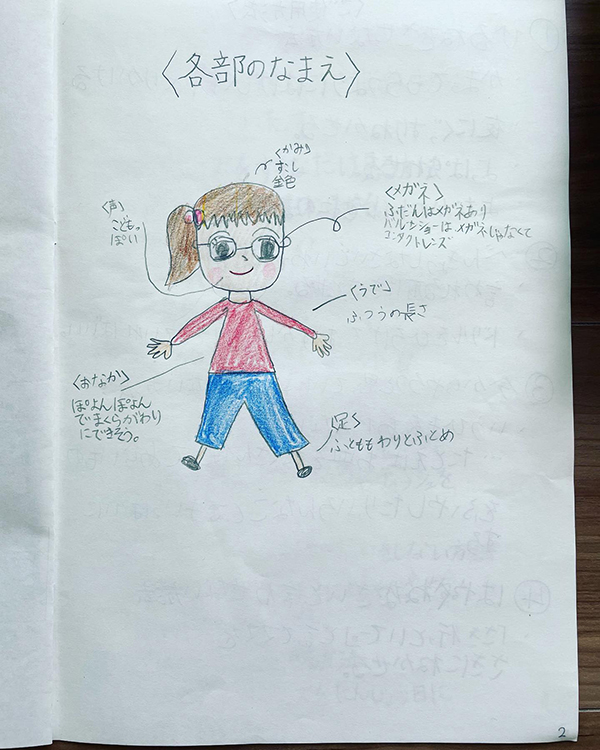 〈各部のなまえ〉
〈かみ〉
すこし
金色
〈声〉
こども。
ぽい
〈メガネ〉
ふだんはメガネあり
バルーンショーはメガネじゃなくて
コンタクトレンズ
〈うで〉
ふつうの長さ
〈おなか〉
ぽよんぽよん
でまくらがわり
にできそう。
〈足〉
ふとももわりとふとめ
2